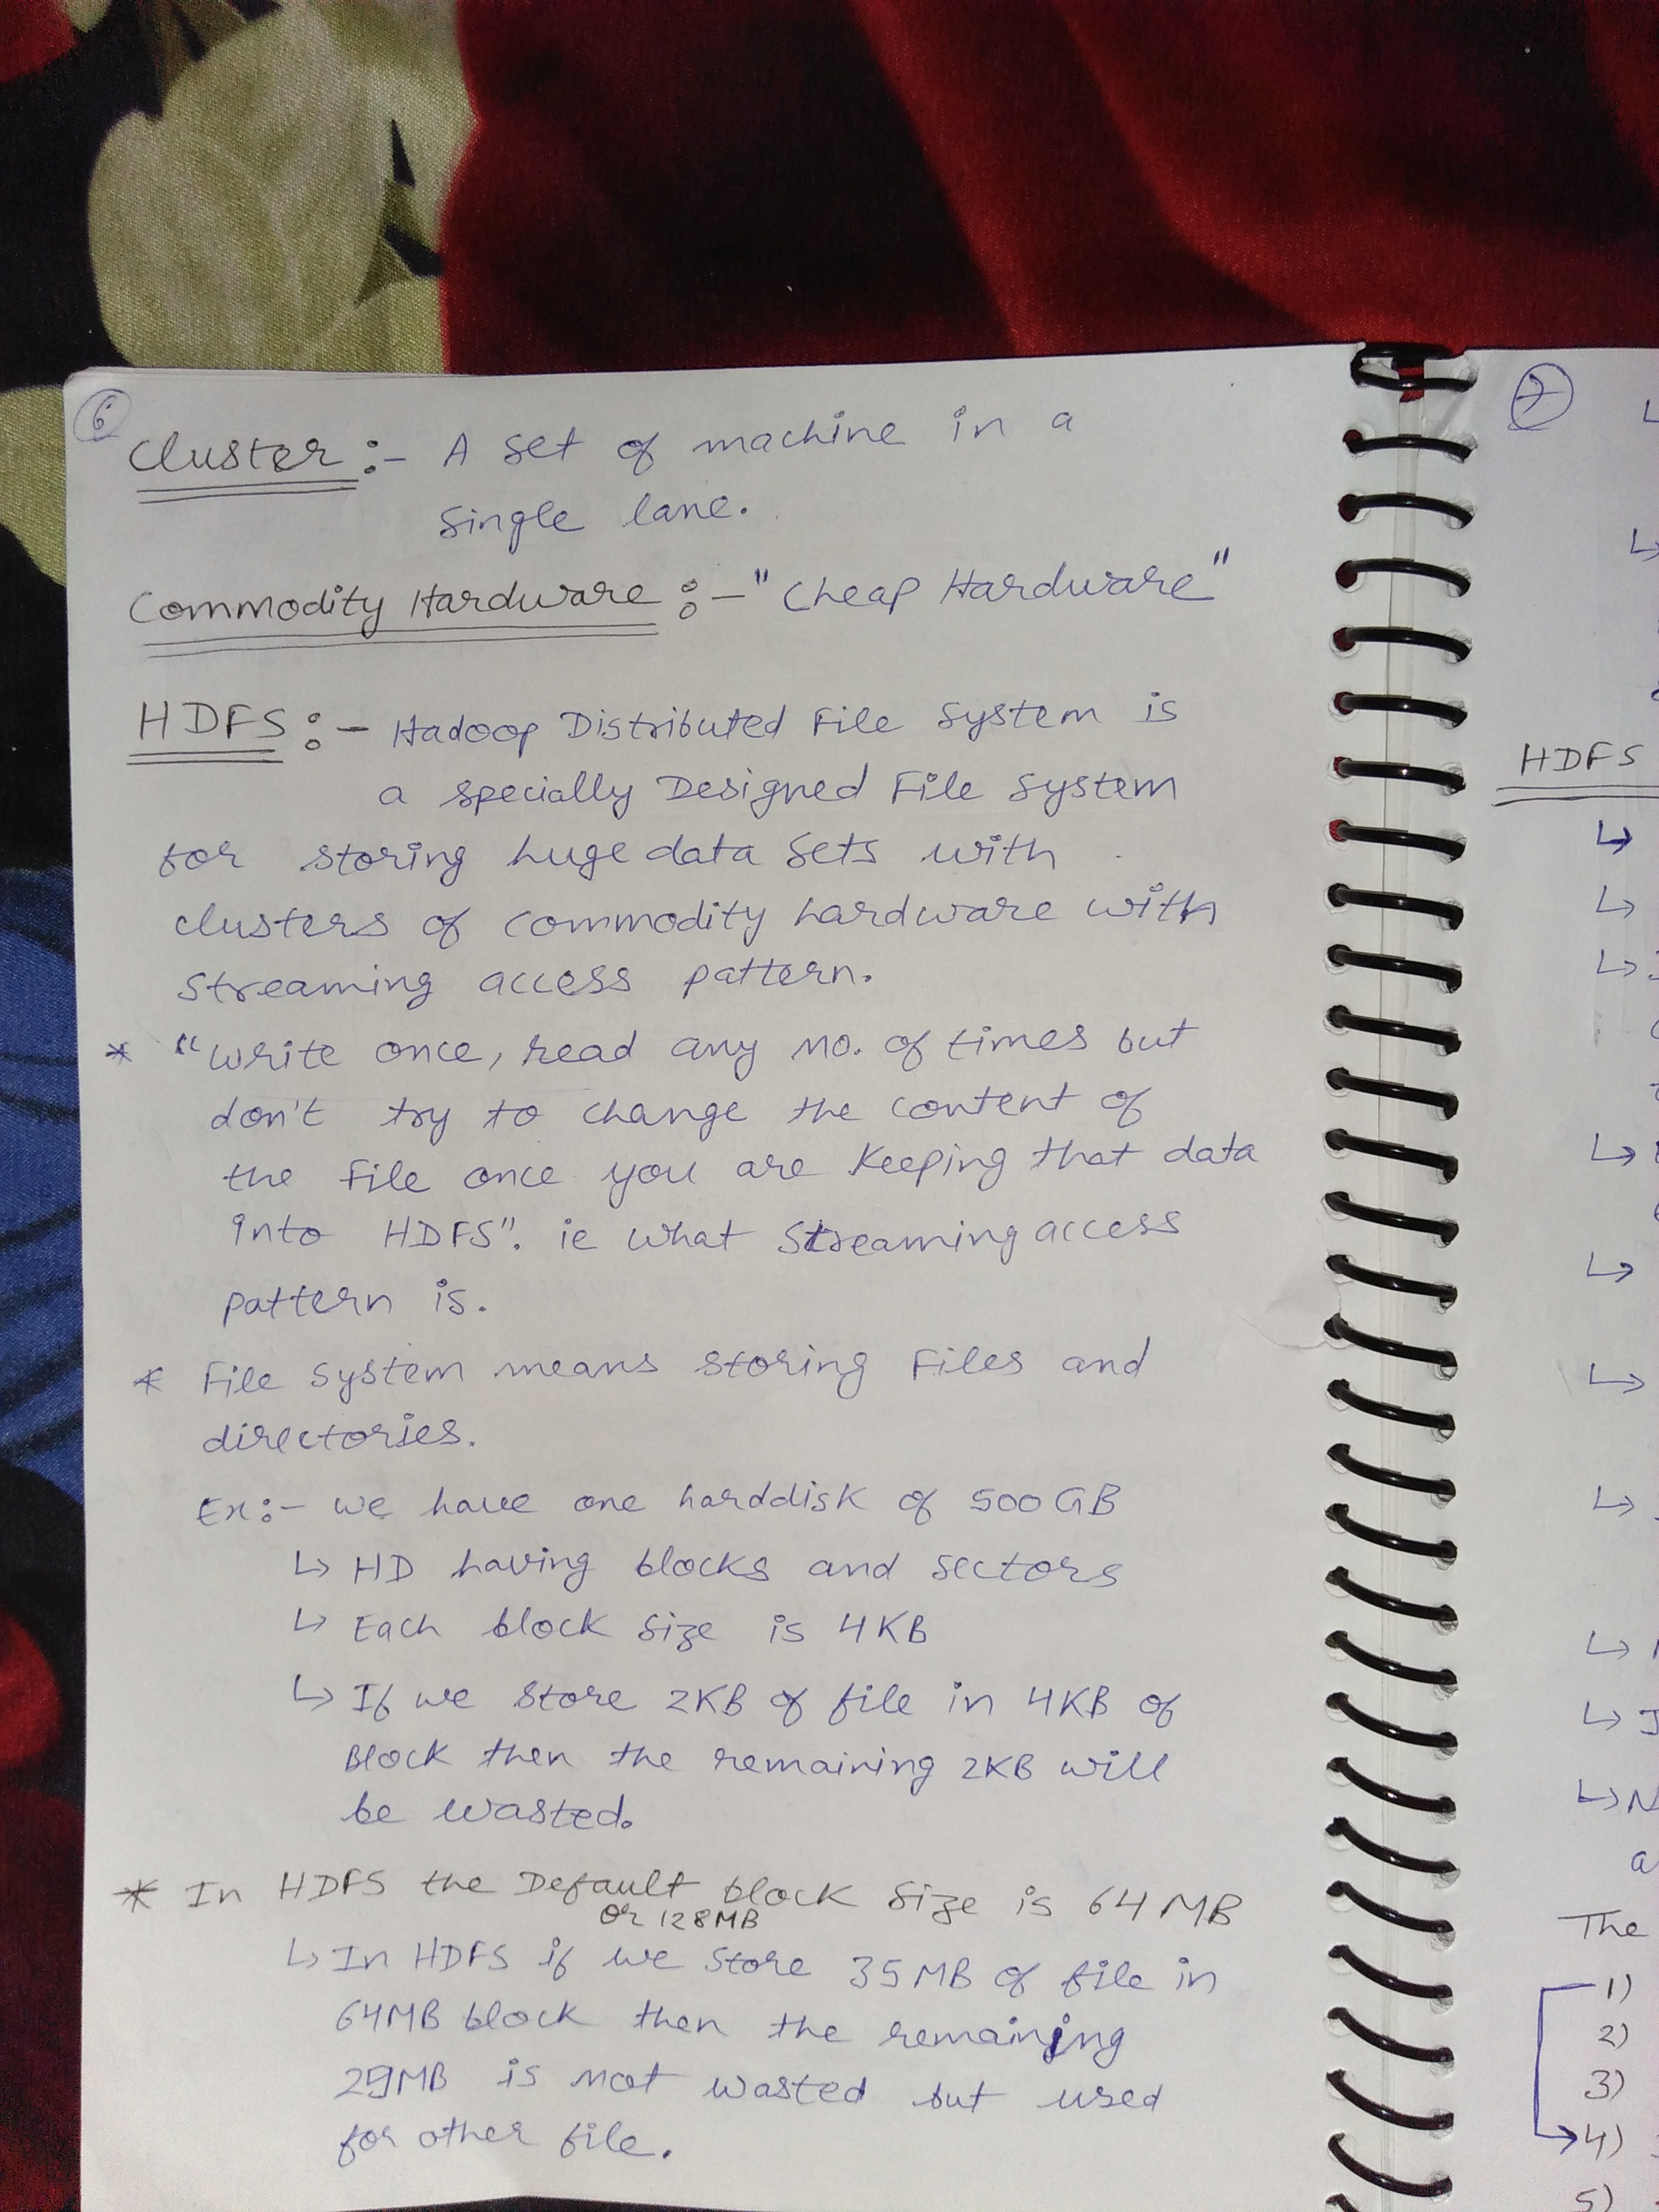 6
Cluster :- A set of machine in a
single lane.
Commodity Hardware :- "Cheap Hardware"
HDFS :- Hadoop Distributed File System is
a specially Designed File System
for storing huge data sets with
clusters of commodity hardware with
streaming access pattern.
* "write once, read any no. of times but
don't try to change the content of
the file once you are keeping that data
into HDFS". ie what streaming access
pattern is.
* File system means storing files and
directories.
Ex:- we have one harddisk of 500 GB
↳ HD having blocks and sectors
↳ Each block size is 4KB
↳ If we store 2KB of file in 4KB of
Block then the remaining 2KB will
be wasted.
* In HDFS the Default block size is 64 MB
or 128MB
↳ In HDFS if we store 35MB of file in
64MB block then the remaining
29MB is not wasted but used
for other file.
7
HDFS
The
1)
2)
3)
4)
5)